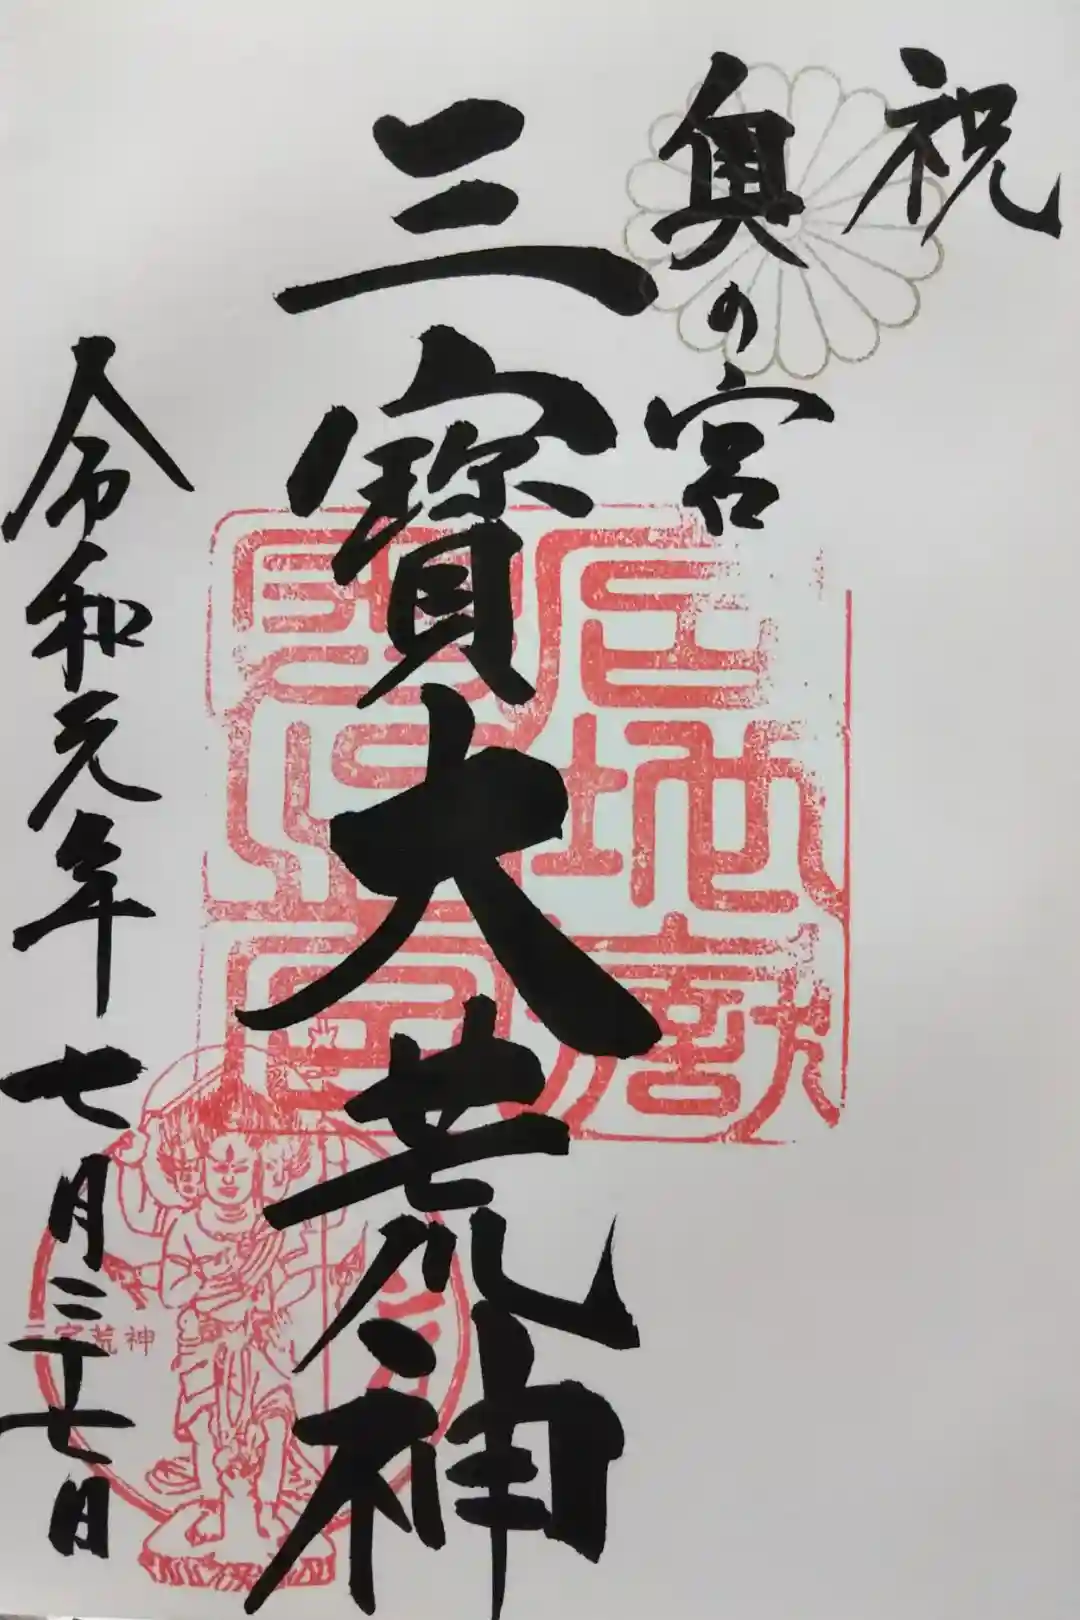 祝
奥の宮
三寳大荒神
令和元年七月二十七日
三宝荒神